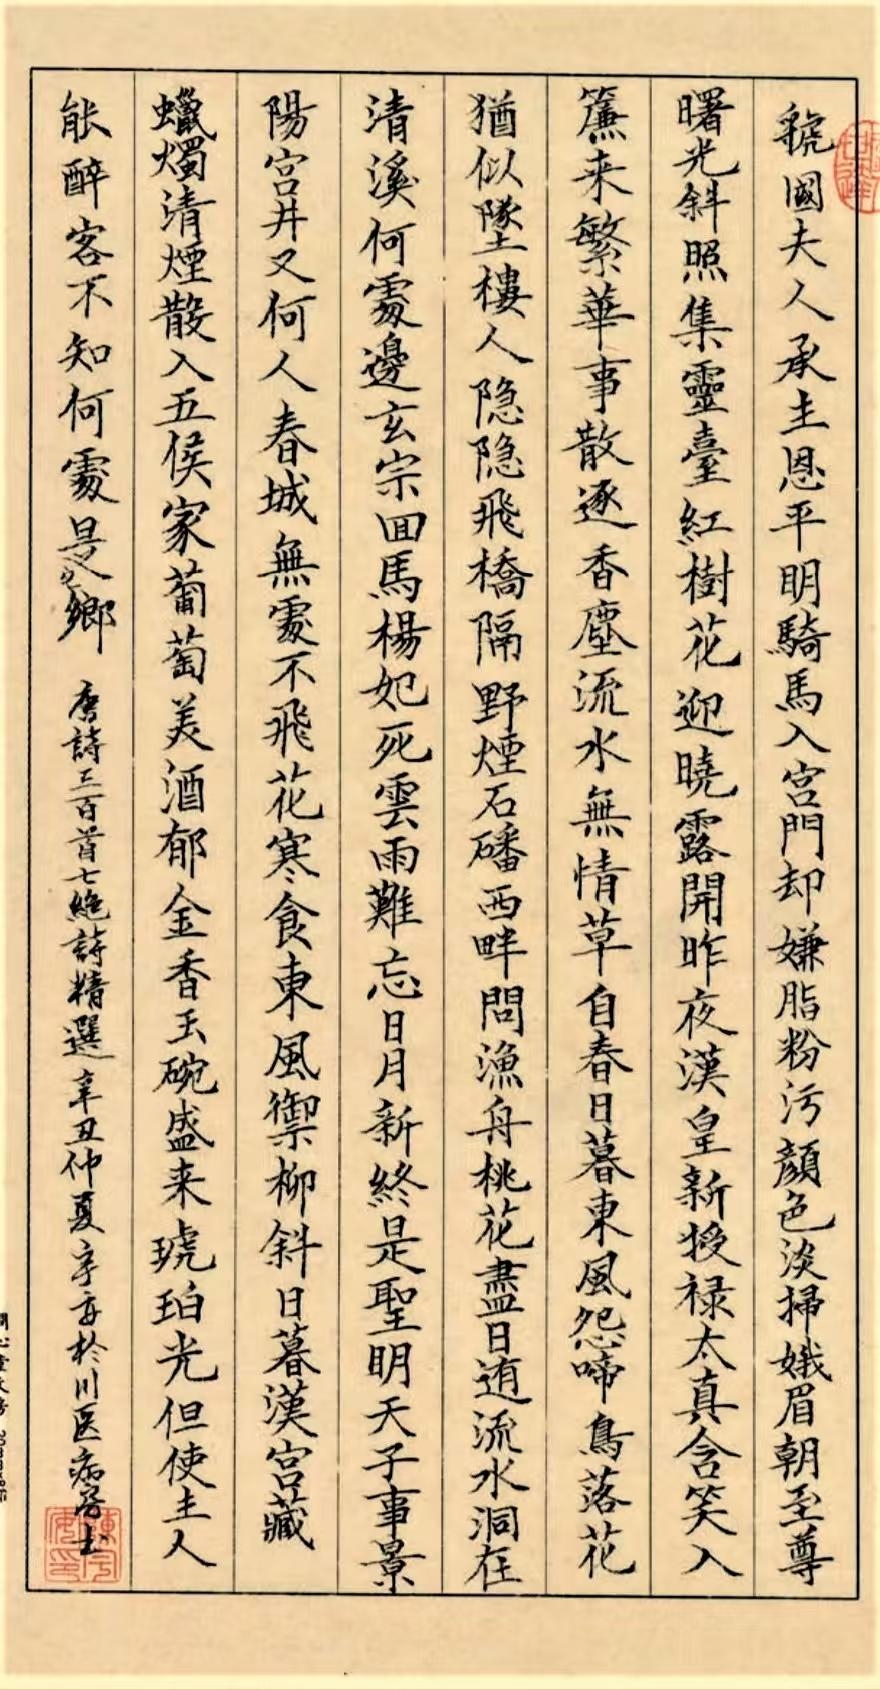 虢國夫人承主恩平明騎馬入宮門却嫌脂粉污顔色淡掃娥眉朝至尊
曙光斜照集靈臺紅樹花迎曉露開昨夜漢皇新授禄太真含笑入
簾来繁華事散逐香塵流水無情草自春日暮東風怨啼鳥落花
猶似墜樓人隐隐飛橋隔野煙石磻西畔問漁舟桃花盡日逐流水洞在
清溪何處邊玄宗回馬楊妃死雲雨難忘日月新終是聖明天子事景
陽宮井又何人春城無處不飛花寒食東風禦柳斜日暮漢宮藏
蠟燭清煙散入五侯家葡萄美酒郁金香玉碗盛来琥珀光但使主人
能醉客不知何處是他鄉
唐詩三百首七絶詩精選 辛丑仲夏 於川医病房